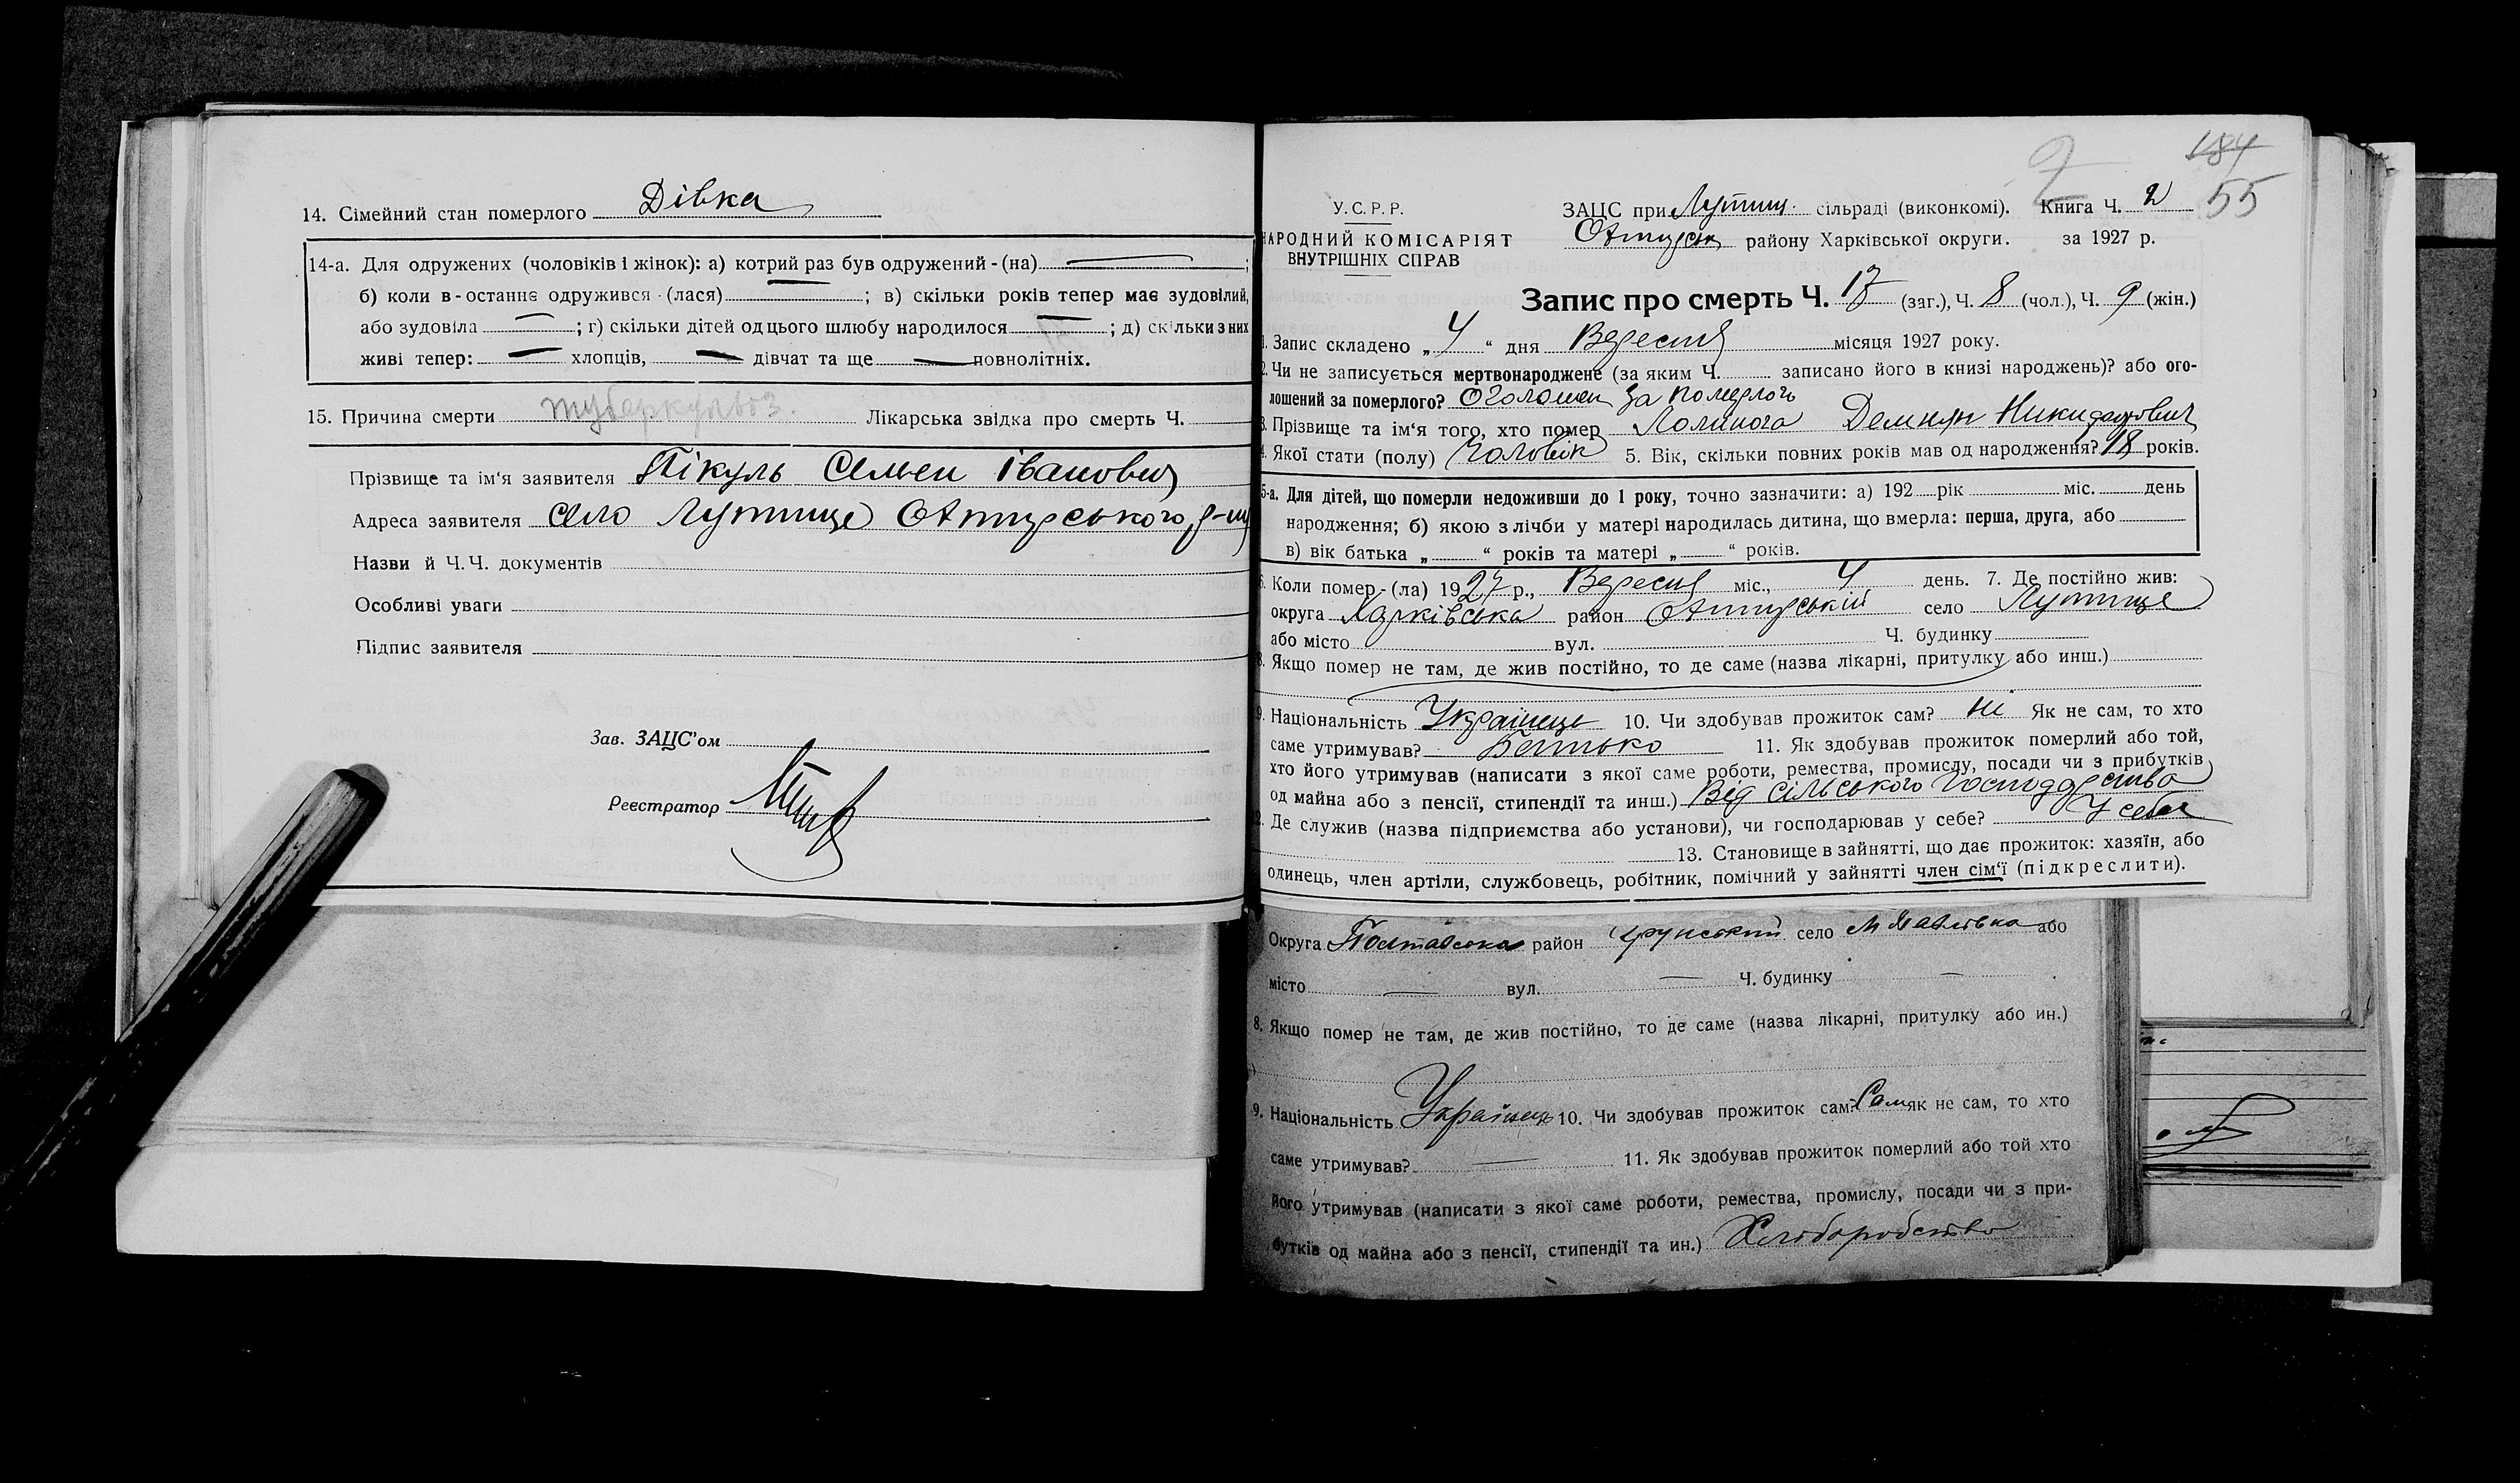 14. Сімейний стан померлого Дівка
14-а. Для одружених (чоловіків і жінок): а) котрий раз був одружений-(на) ;
б) коли в-останнє одружився (лася) ; в) скільки років тепер має зудовілий,
або зудовіла ; г) скільки дітей од цього шлюбу народилося ; д) скільки з них
живі тепер: хлопців, дівчат та ще повнолітніх.
15. Причина смерти туберкульоз. Лікарська звідка про смерть Ч.
Прізвище та ім'я заявителя Пікуль Семен Іванович
Адреса заявителя село Лутище Охтирського р-ну
Назви й Ч.Ч. документів
Особливі уваги
Підпис заявителя
Зав. ЗАЦС'ом
Реєстратор
184
2
55
У.С.Р.Р.
НАРОДНИЙ КОМІСАРІЯТ
ВНУТРІШНІХ СПРАВ
ЗАЦС при Лутищ. сільраді (виконкомі). Книга Ч. 2
Охтирськ району Харківської округи. за 1927 р.
Запис про смерть Ч. 17 (заг.), Ч. 8 (чол.), Ч. 9 (жін.)
1. Запис складено „4“ дня Вересня місяця 1927 року.
2. Чи не записується мертвонароджене (за яким Ч. записано його в книзі народжень)? або ого-
лошений за померлого? Оголошен за померлого
3. Прізвище та ім'я того, хто помер Демьян Никифорович
4. Якої стати (полу) Чоловік 5. Вік, скільки повних років мав од народження? 18 років.
5-а. Для дітей, що померли недоживши до 1 року, точно зазначити: а) 192 рік міс. день
народження; б) якою з лічби у матері народилась дитина, що вмерла: перша, друга, або
в) вік батька „ “ років та матері „ “ років.
6. Коли помер-(ла) 1927 р., Вересня міс., 4 день. 7. Де постійно жив:
округа Харківська район Охтирський село Лутище
або місто вул. Ч. будинку
8. Якщо помер не там, де жив постійно, то де саме (назва лікарні, притулку або инш.)
9. Національність Українець 10. Чи здобував прожиток сам? ні Як не сам, то хто
саме утримував? Батько 11. Як здобував прожиток померлий або той,
хто його утримував (написати з якої саме роботи, ремества, промислу, посади чи з прибутків
од майна або з пенсії, стипендії та инш.) Від сільського господарства
12. Де служив (назва підприємства або установи), чи господарював у себе? У себе
13. Становище в зайнятті, що дає прожиток: хазяїн, або
одинець, член артіли, службовець, робітник, помічний у зайнятті член сім'ї (підкреслити).
Округа Полтавська район село М Павлівка або
місто вул. Ч. будинку
8. Якщо помер не там, де жив постійно, то де саме (назва лікарні, притулку або ин.)
9. Національність Українець 10. Чи здобував прожиток сам? Сам як не сам, то хто
саме утримував? 11. Як здобував прожиток померлий або той хто
його утримував (написати з якої саме роботи, ремества, промислу, посади чи з при-
бутків од майна або з пенсії, стипендії та ин.) Хліборобство